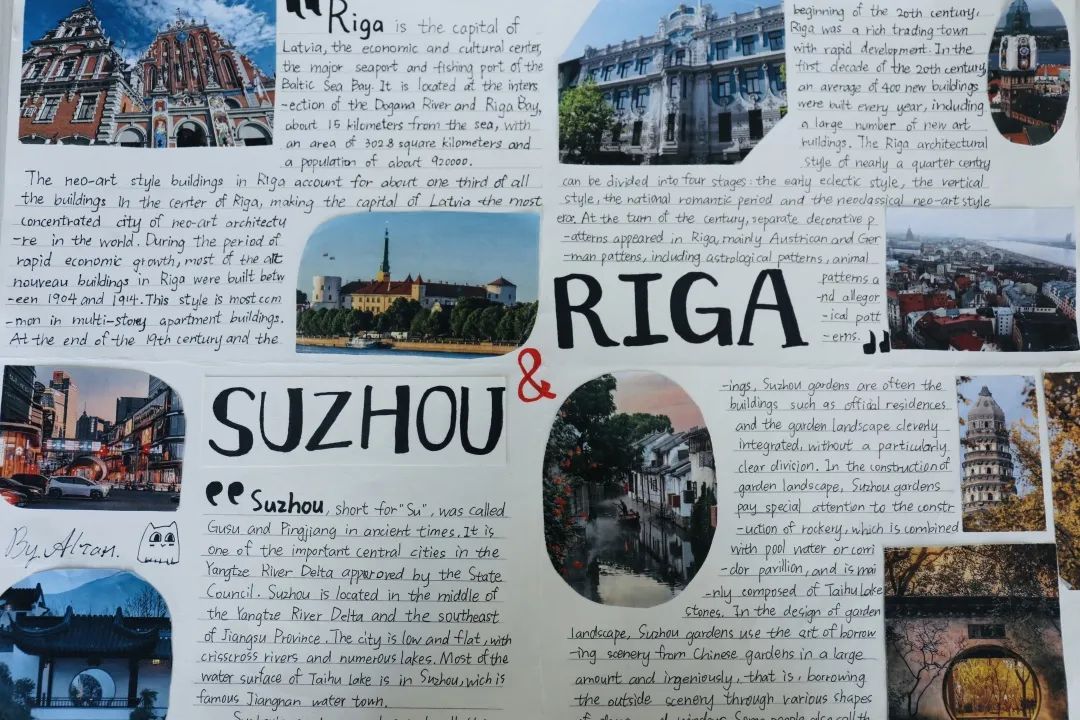 "Riga is the capital of
Latvia, the economic and cultural center,
the major seaport and fishing port of the
Baltic Sea Bay. It is located at the inters
-ection of the Dogawa River and Riga Bay,
about 15 kilometers from the sea, with
an area of 302.8 square kilometers and
a population of about 920000.
The neo-art style buildings in Riga account for about one third of all
the buildings In the center of Riga, making the capital of Latvia the most
concentrated city of neo-art architectu
-re in the world. During the period of
rapid economic growth, most of the art
nouveau buildings in Riga were built betw
-een 1904 and 1914. This style is most com
-mon in multi-story apartment buildings.
At the end of the 19th century and the
beginning of the 20th century,
Riga was a rich trading town
with rapid development. In the
first decade of the 20th century,
an average of 400 new buildings
were built every year, including
a large number of new art
buildings. The Riga architectural
style of nearly a quarter centry
can be divided into four stages: the early eclectic style, the vertical
style, the national romantic period and the neoclassical neo-art style
era. At the turn of the century, separate decorative p
-atterns appeared in Riga, mainly Austrican and Ger
-man patterns, including astrological patterns, animal
patterns a
-nd allegor
-ical patt
-erns."
RIGA
&
SUZHOU
"Suzhou, short for "Su", was called
Gusu and Pingjiang in ancient times. It is
one of the important central cities in the
Yangtze River Delta approved by the State
Council. Suzhou is located in the middle of
the Yangtze River Delta and the southeast
of Jiangsu Province. The city is low and flat, with
crisscross rivers and numerous lakes. Most of the
water surface of Taihu lake is in Suzhou, wich is
famous Jiangnan water town.
By. Altan.
-ings, Suzhou gardens are often the
buildings such as official residences
and the garden landscape cleverly
integrated, without a particularly
clear division. In the construction of
garden landscape, Suzhou gardens
pay special attention to the constr
-uction of rockery, which is combined
with pool water or corri
-dor pavilion, and is mai
-nly composed of Taihu Lake
stones. In the design of garden
landscape, Suzhou gardens use the art of borrow
-ing scenery from Chinese gardens in a large
amount and ingeniously, that is, borrowing
the outside scenery through various shapes